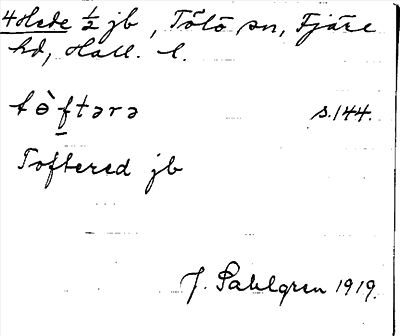 4 Hede ½ jb, Tölö sn, Fjäre
hd, Hall. l.
tɵ̀ftərə s. 144.
Toftered jb
J. Sahlgren 1919.